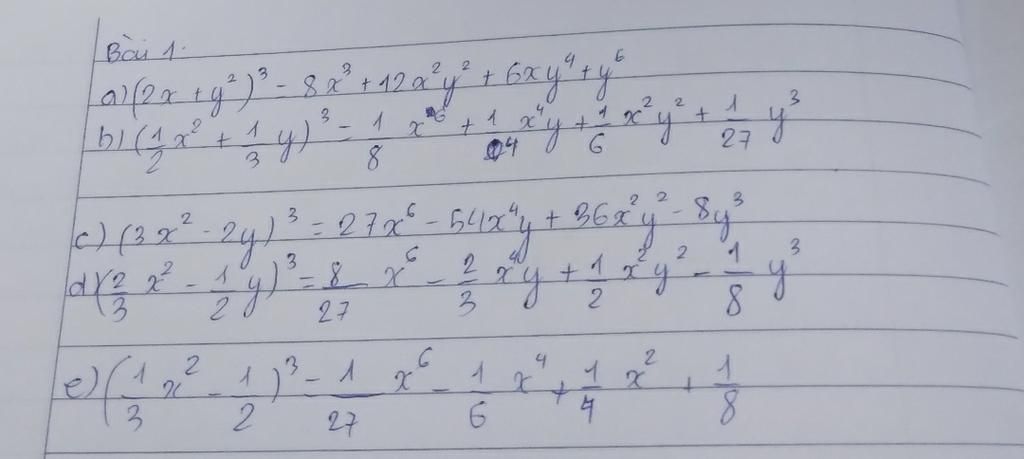 Bài 1.
a) (2x + y²)³ = 8x³ + 12x²y² + 6xy⁴ + y⁶
b) (1/2 x² + 1/3 y)³ = 1/8 x⁶ + 1/4 x⁴y + 1/6 x²y² + 1/27 y³
c) (3x² - 2y)³ = 27x⁶ - 54x⁴y + 36x²y² - 8y³
d) (2/3 x² - 1/2 y)³ = 8/27 x⁶ - 2/3 x⁴y + 1/2 x²y² - 1/8 y³
e) (1/3 x² - 1/2)³ = 1/27 x⁶ - 1/6 x⁴ + 1/4 x² + 1/8